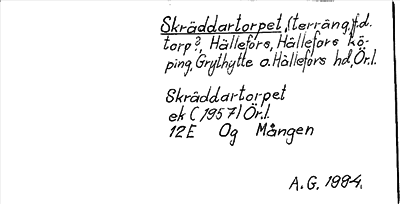 Skräddartorpet, (terräng, f.d.
torp?, Hällefors, Hällefors kö-
ping, Grythytte o. Hällefors hd, Ör.l.
Skräddartorpet
ek (1957) Ör.l.
12E Og Mången
A.G. 1994.